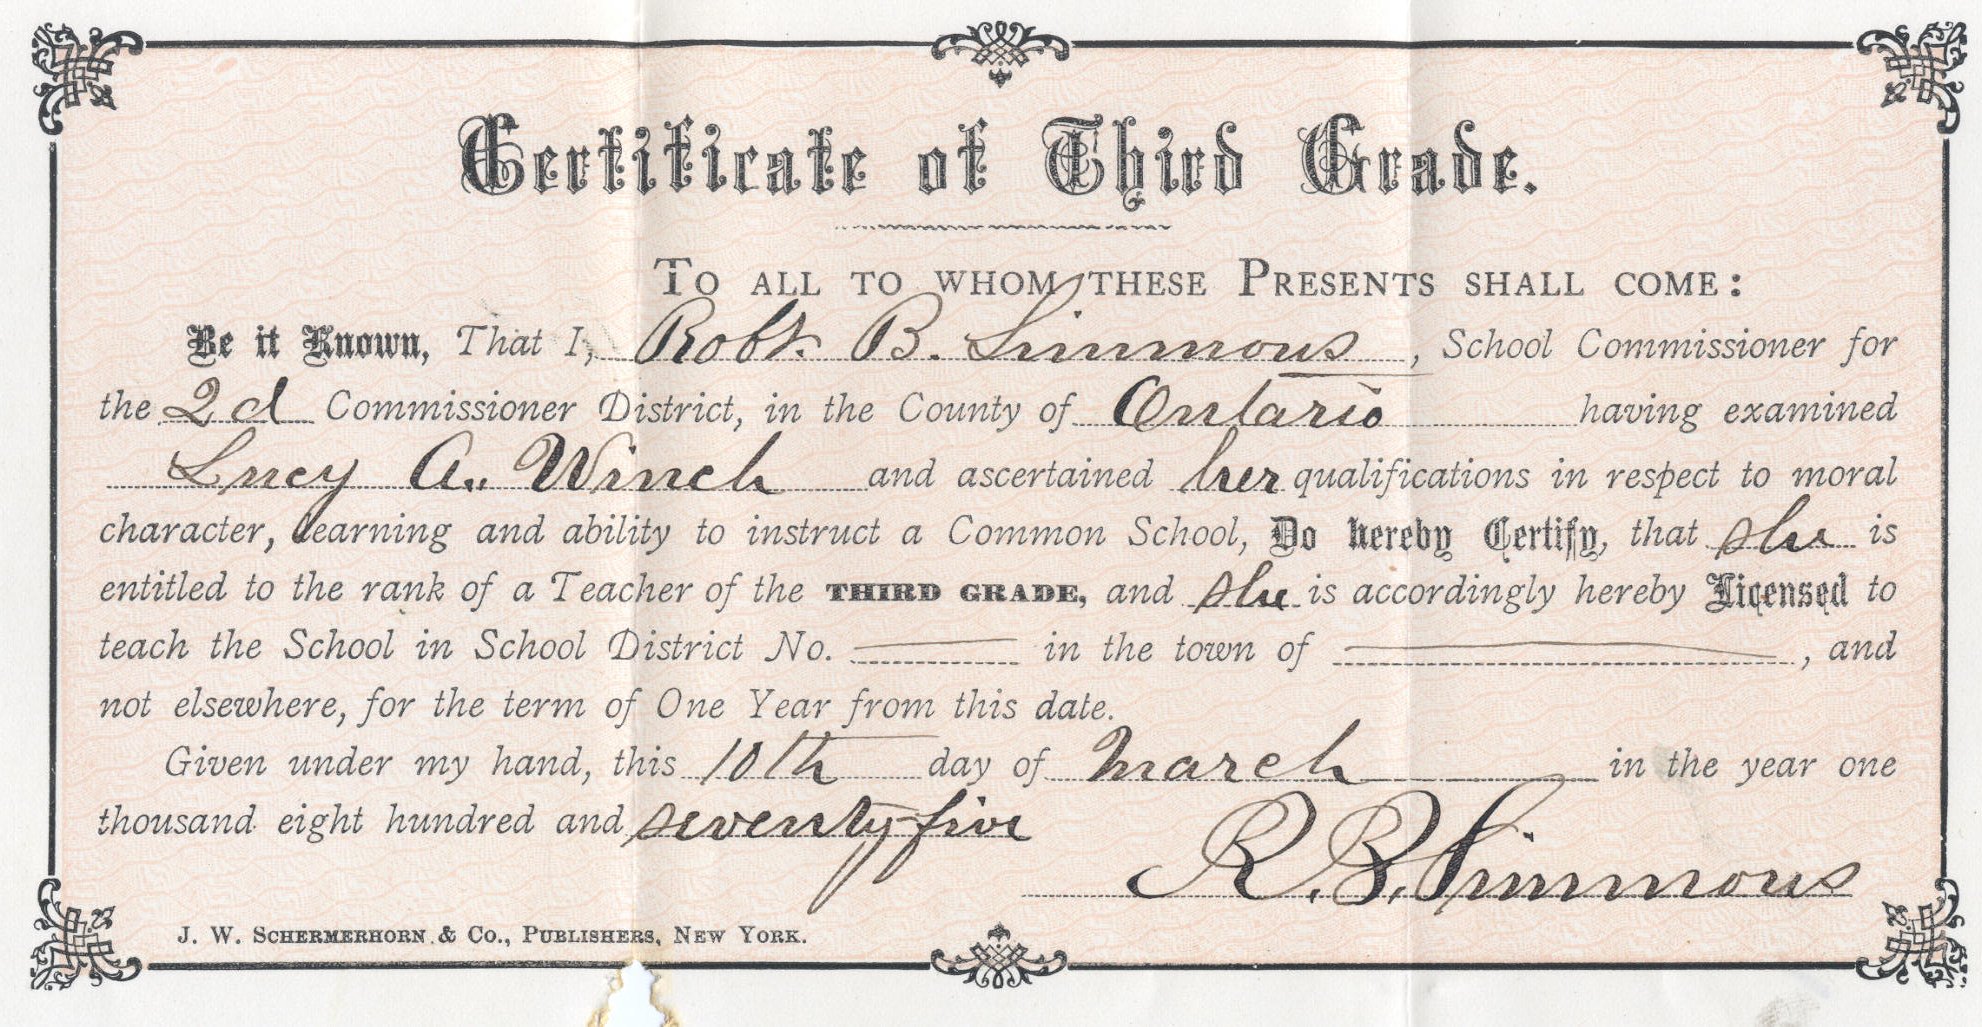 Certificate of Third Grade.
TO ALL TO WHOM THESE PRESENTS SHALL COME:
Be it Known, That I, Robt. B. Simmons, School Commissioner for
the 2d Commissioner District, in the County of Ontario having examined
Lucy A. Winch and ascertained her qualifications in respect to moral
character, learning and ability to instruct a Common School, Do hereby Certify, that she is
entitled to the rank of a Teacher of the THIRD GRADE, and she is accordingly hereby Licensed to
teach the School in School District No. —— in the town of ——, and
not elsewhere, for the term of One Year from this date.
Given under my hand, this 10th day of March in the year one
thousand eight hundred and seventy-five
R. B. Simmons
J. W. SCHERMERHORN & CO., PUBLISHERS, NEW YORK.